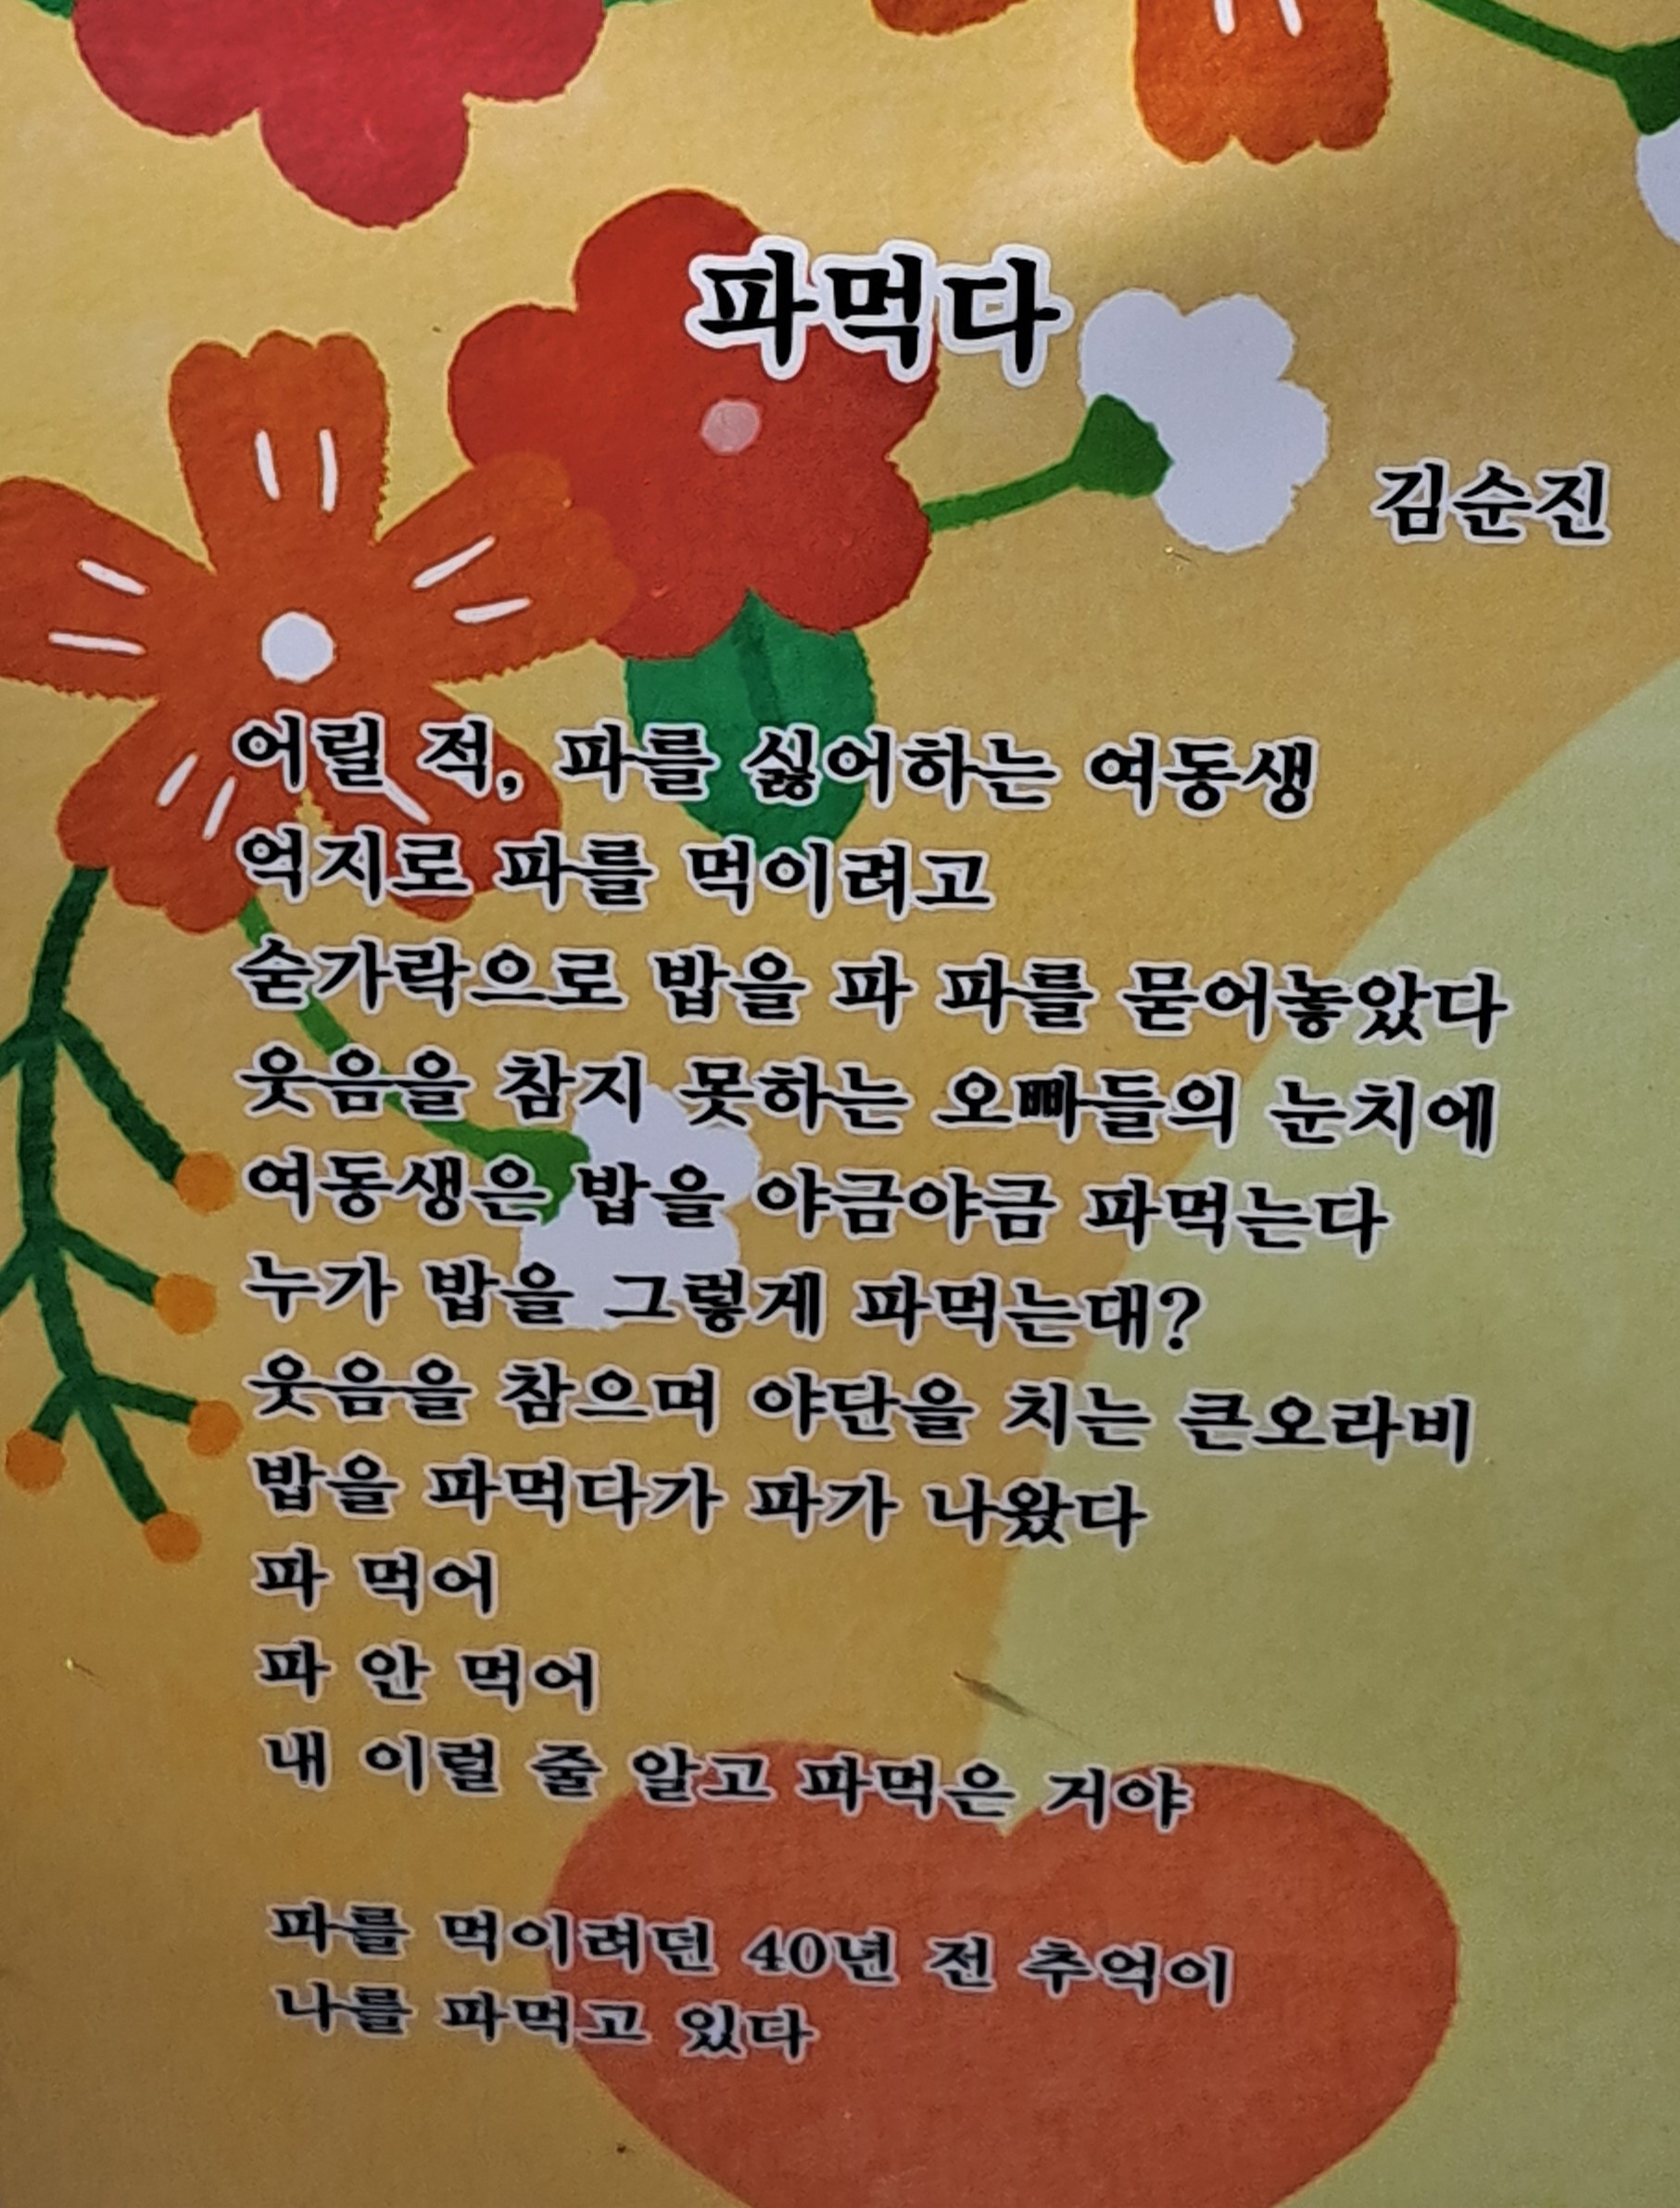 파먹다
김순진
어릴 적, 파를 싫어하는 여동생
억지로 파를 먹이려고
숟가락으로 밥을 파 파를 묻어놓았다
웃음을 참지 못하는 오빠들의 눈치에
여동생은 밥을 야금야금 파먹는다
누가 밥을 그렇게 파먹는대?
웃음을 참으며 야단을 치는 큰오라비
밥을 파먹다가 파가 나왔다
파 먹어
파 안 먹어
내 이럴 줄 알고 파먹은 거야
파를 먹이려던 40년 전 추억이
나를 파먹고 있다